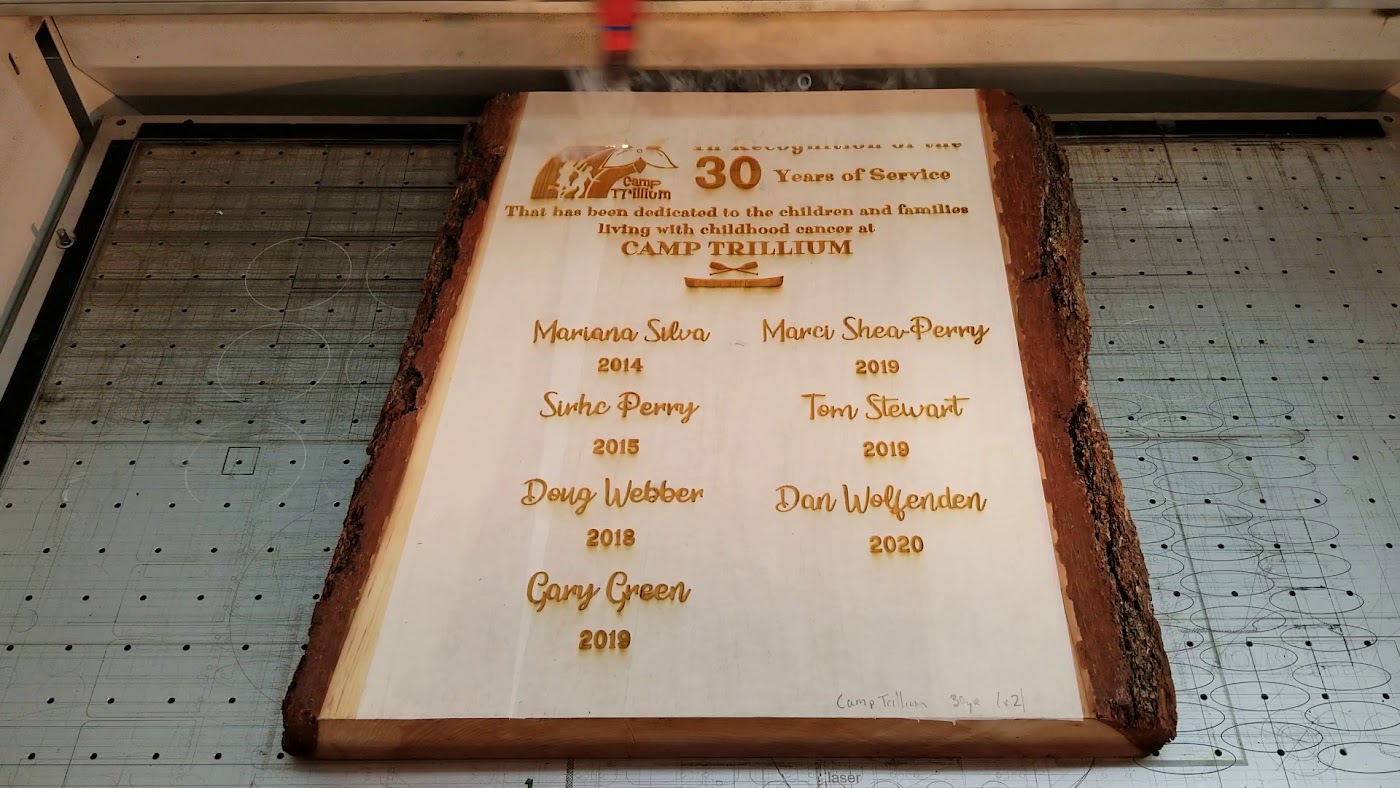 In Recognition of the
Camp
Trillium
30 Years of Service
That has been dedicated to the children and families
living with childhood cancer at
CAMP TRILLIUM
Mariana Silva
2014
Sirhc Perry
2015
Doug Webber
2018
Gary Green
2019
Marci Shea-Perry
2019
Tom Stewart
2019
Dan Wolfenden
2020
Camp Trillium 30yr (x2)
laser